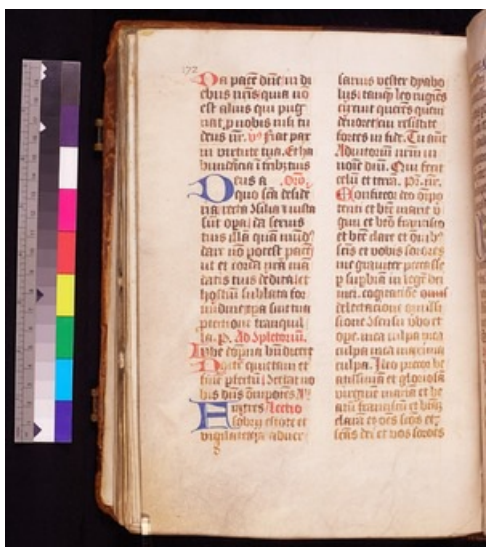 172
Da pacē dñe in di
ebus nr̄is quia nō
est alius qui pug
nat p nobis nisi tu
deus nr̄. vͦ fiat pax
in virtute tua. Et ha
bundācia ī
Deus a Orō.
quo scā deside
ria recta ꝯsilia ⁊ iusta
sūt opa: da seruis
tuis illā quā mūdꝰ
dare nō potest pacē
ut et corda nr̄a mā
datis tuis dedita: et
hostiū sublata for
midine tpa sint tua
ptectione tranquil
la. p. Ad ꝯpletoriū.
Iube dopna bn̄dicere
Noctē quietam et
finē pfectū
bis dn̄s om̄ipotēs
Fratres Lectio
sobrii estote et
vigilate: quia aduer
sarius vester dyabo
lus: tanq̄ leo rugiēs
circuit querēs quem
deuoret: cui resistite
fortes in fide. Tu aut̄
Adiutoriū nr̄m in
noīe dn̄i. Qui fecit
celū et terrā. Pr̄. nr̄.
Confiteor deo om̄ipo
tenti et bt̄e marie v̄
gini et bt̄o francisco
et bt̄e clare et om̄ibꝰ
scīs et vobis sorores
me grauiter peccasse
p supbiā in lege dei
mei. cogitatiōe
delectacione omissi
sione ꝯsensu vbo et
ope. mea culpa mea
culpa mea maxima
culpa. Ideo precor be
atissimā et gloriosā
virginē mariā et be
atū franciscū et bt̄ā
clarā et om̄s scōs et
scās dei et vos sorores